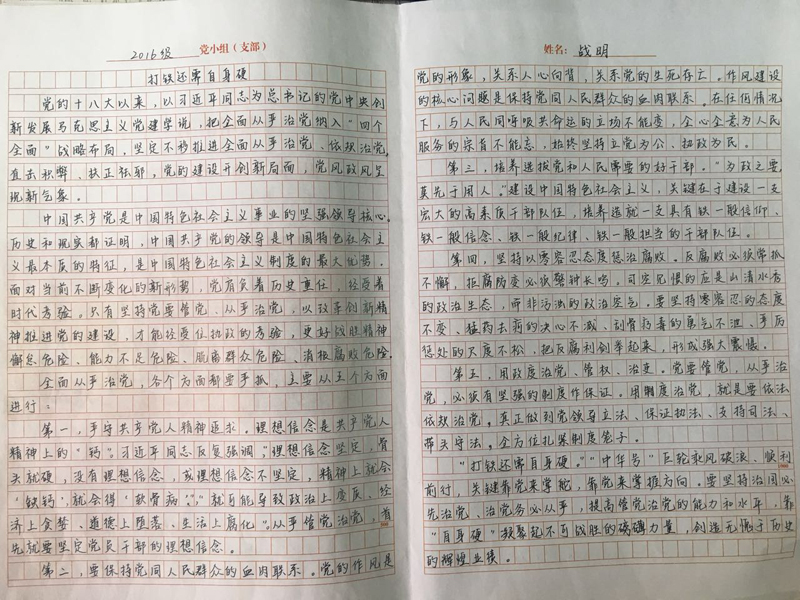 2016级 党小组(支部)
打铁还需自身硬
党的十八大以来,以习近平同志为总书记的党中央创
新发展马克思主义党建学说,把全面从严治党纳入“四个
全面”战略布局,坚定不移推进全面从严治党、依规治党,
直击积弊、扶正祛邪,党的建设开创新局面,党风政风呈
现新气象。
中国共产党是中国特色社会主义事业的坚强领导核心。
历史和现实都证明,中国共产党的领导是中国特色社会主
义最本质的特征,是中国特色社会主义制度的最大优势。
面对当前不断变化的新形势,党肩负着历史重任,经受着
时代考验。只有坚持党要管党、从严治党,以改革创新精
神推进党的建设,才能经受住执政的考验,更好战胜精神
懈怠危险、能力不足危险、脱离群众危险、消极腐败危险。
全面从严治党,各个方面都要严抓,主要从五个方面
进行:
第一,严守共产党人精神追求。理想信念是共产党人
精神上的“钙”。习近平同志反复强调:“理想信念坚定,骨
头就硬,没有理想信念,或理想信念不坚定,精神上就会
‘缺钙’,就会得‘软骨病’”,就可能导致政治上变质、经
济上贪婪、道德上堕落、生活上腐化。从严管党治党,首
先就要坚定党员干部的理想信念。
第二,要保持党同人民群众的血肉联系。党的作风是
姓名:战明
党的形象,关系人心向背,关系党的生死存亡。作风建设
的核心问题是保持党同人民群众的血肉联系。在任何情况
下,与人民同呼吸共命运的立场不能变,全心全意为人民
服务的宗旨不能忘,始终坚持立党为公、执政为民。
第三,培养选拔党和人民需要的好干部。“为政之要,
莫先于用人。”建设中国特色社会主义,关键在于建设一支
宏大的高素质干部队伍,培养造就一支具有铁一般信仰、
铁一般信念、铁一般纪律、铁一般担当的干部队伍。
第四,坚持以零容忍态度惩治腐败。反腐败必须常抓
不懈,拒腐防变必须警钟长鸣。司空见惯的应是山清水秀
的政治生态,而非污浊的政治空气。要坚持零容忍的态度
不变、猛药去疴的决心不减、刮骨疗毒的勇气不泄、严厉
惩处的尺度不松,把反腐利剑举起来,形成强大震慑。
第五,用政度治党、管权、治吏。党要管党,从严治
党,必须有坚强的制度作保证。用制度治党,就是要依法
依规治党。真正做到党领导立法、保证执法、支持司法、
带头守法。全方位扎紧制度笼子。
“打铁还需自身硬。”“中华号”巨轮乘风破浪、顺利
前行,关键靠党来掌舵,靠党来掌握方向。要坚持治国必
先治党、治党务必从严,提高管党治党的能力和水平,靠
“自身硬”凝聚起不可战胜的磅礴力量,创造无愧于历史
的辉煌业绩。